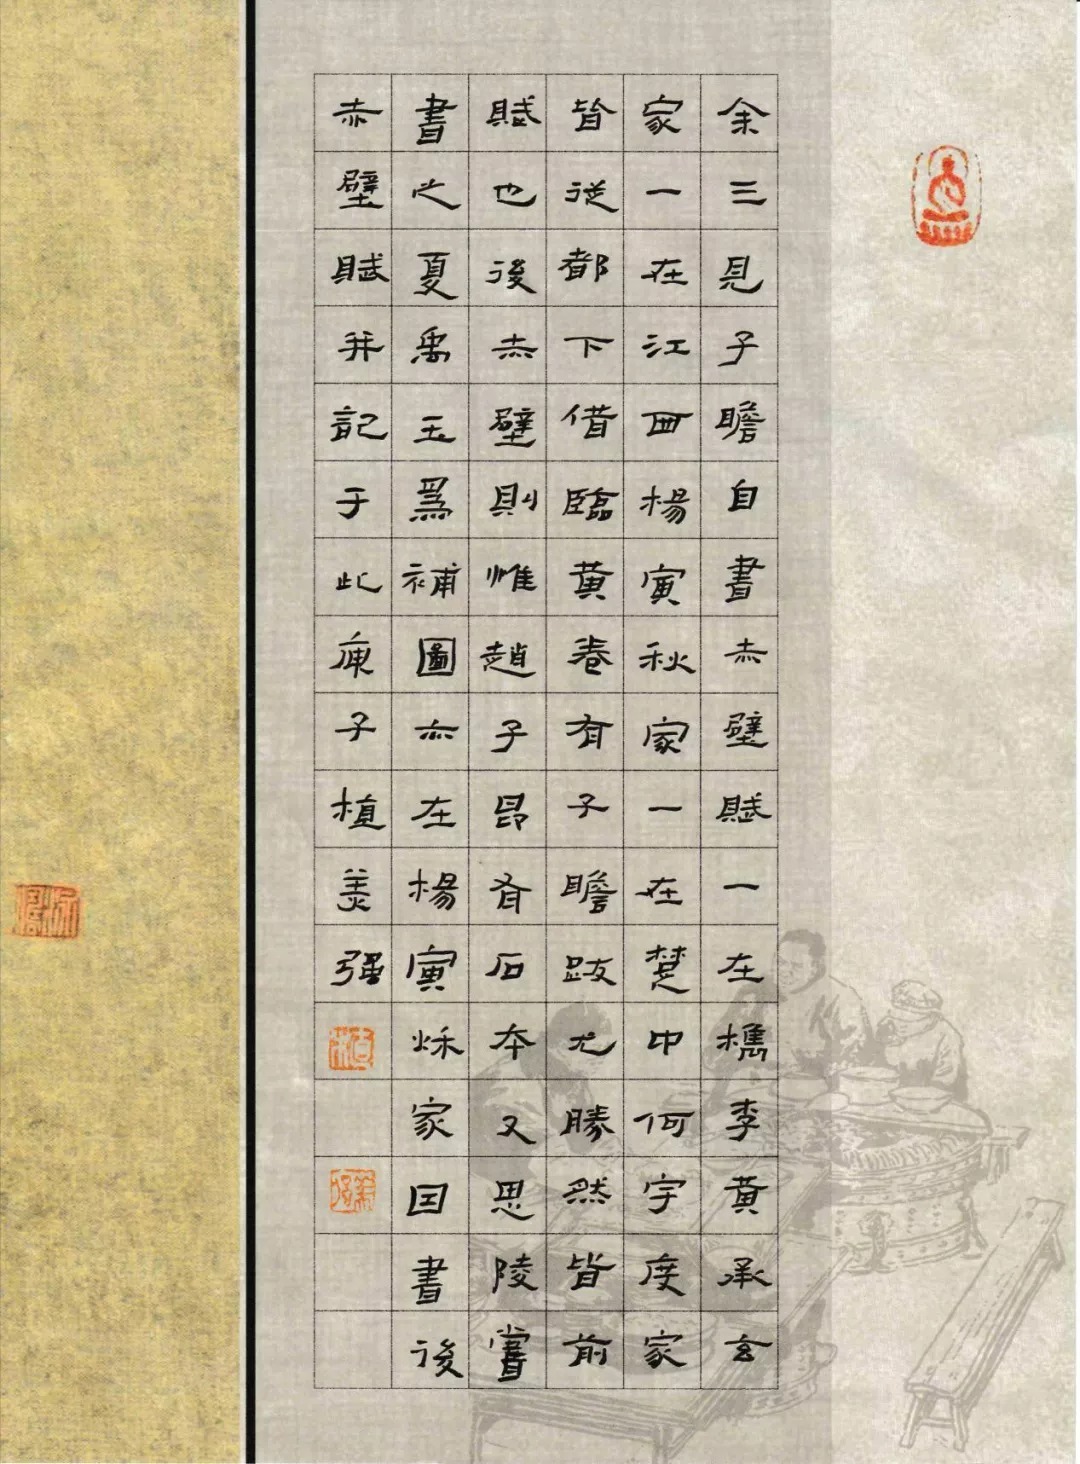 余三見子瞻自書赤壁賦一在檇李黄承玄
家一在江西楊寅秋家一在楚中何宇度家
皆從都下借臨黄卷有子瞻跋尤勝然皆前
賦也後赤壁則惟趙子昂有石本又思陵嘗
書之夏禹玉爲補圖亦在楊寅秌家因書後
赤壁賦并記于此庚子植美强